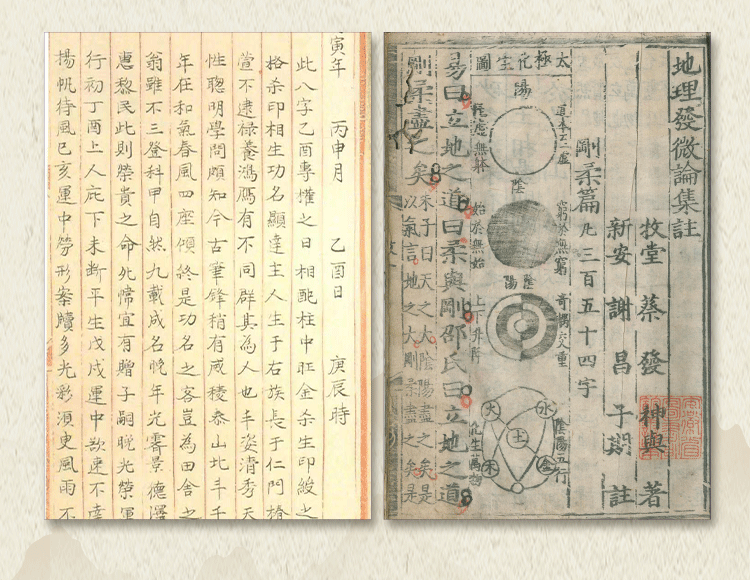 地理發微論集註
牧堂 蔡 發 神與 著
新安 謝 昌 子期 註
剛柔篇 凡三百五十四字
太極化生圖
陽
道本工虛
耗虛無躰
陰
窮於無窮
始於無始
陰
陽
上下升降
陰陽五行
化生萬物
水
火
土
木
金
易曰立地之道曰柔與剛邵氏曰立地之道
剛柔盡之矣
朱子曰天之大陰陽盡之矣是
以氣言地之大剛柔盡之矣是
寅年 丙申月 乙酉日 庚辰時
此八字乙酉專權之日相配柱中旺金杀生印綬之
格杀印相生功名顯達主人生于右族長于仁門椿
萱不逮祿養鴻鴈有不同群其為人也丰姿清秀天
性聰明學問頗知今古筆鋒稍有威稜泰山北斗千
年在和氣春風四座傾終是功名之客豈為田舍之
翁雖不三登科甲自然九載成名晚年光霽景德澤
惠黎民此則榮貴之命幃宜有贈子嗣晚光榮運
行初丁酉上人庇下未斷平生戊戌運中欲速不達
揚帆待風巳亥運中勞形案牘多光彩須更風雨不